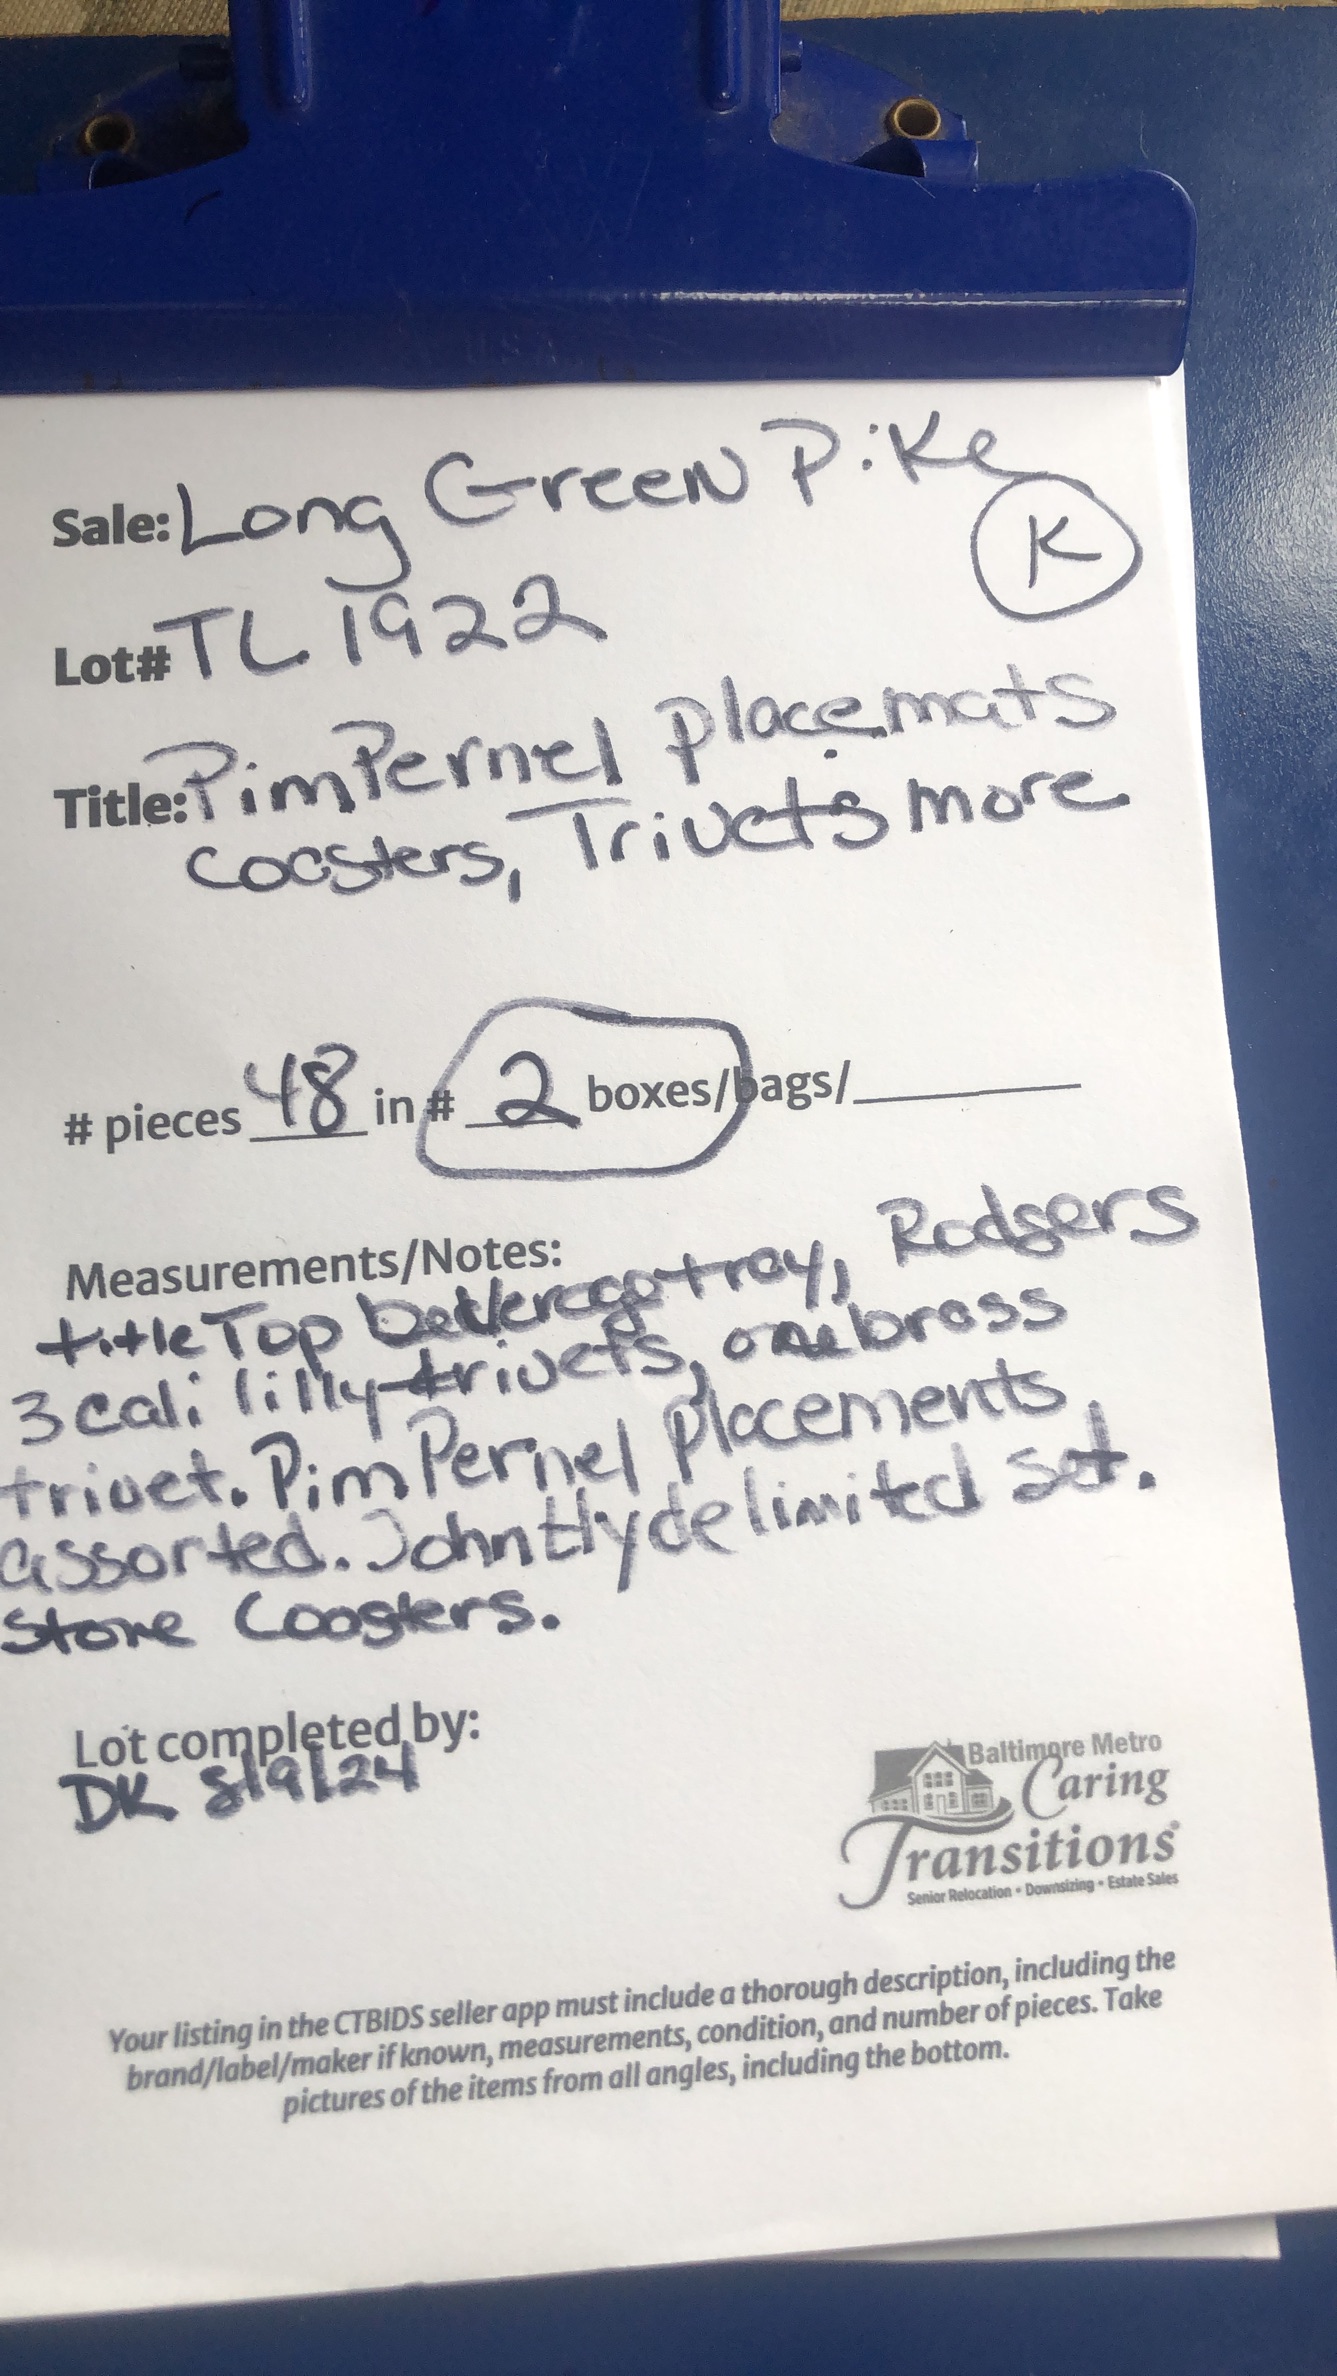 Sale: Long Green Pike
K
Lot# TL 1922
Title: PimPernel placemats
coasters, Trivets more
# pieces 48 in # 2 boxes/bags/
Measurements/Notes:
title Top beverage tray, Rodgers
3 cali lilly trivets, one brass
trivet. PimPernel Placements
assorted. John Hyde limited set.
Stone Coasters.
Lot completed by:
DK 8/9/24
Baltimore Metro
Caring
Transitions®
Senior Relocation • Downsizing • Estate Sales
Your listing in the CTBIDS seller app must include a thorough description, including the
brand/label/maker if known, measurements, condition, and number of pieces. Take
pictures of the items from all angles, including the bottom.